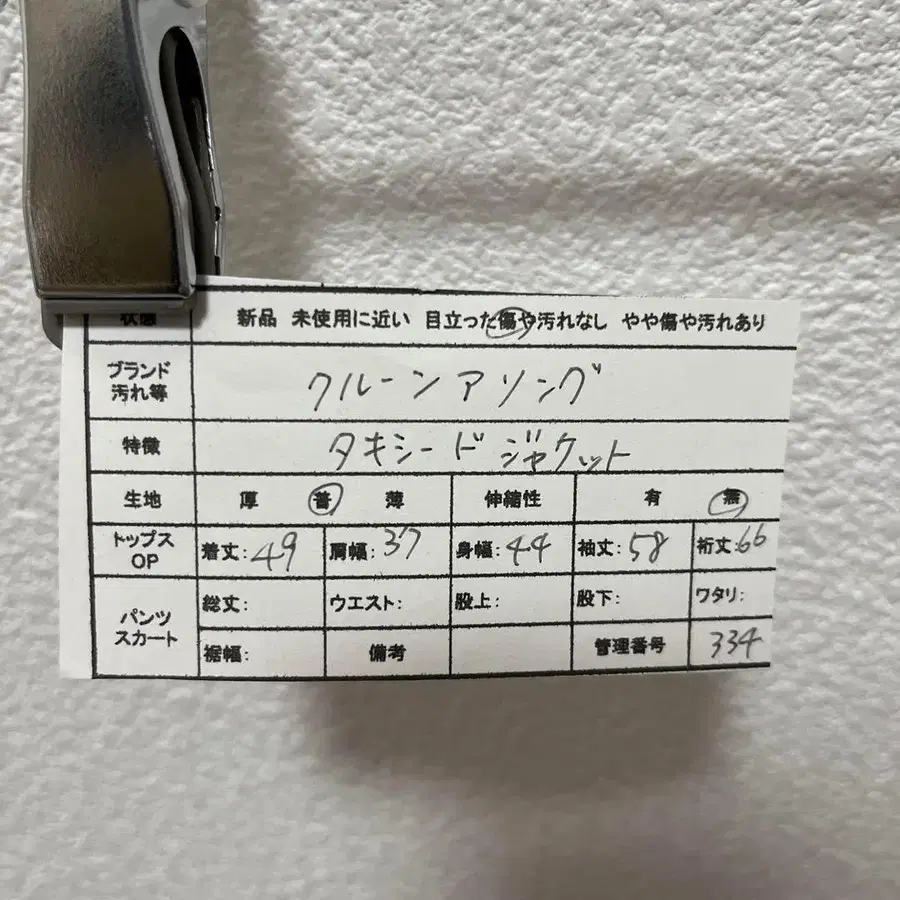 状態 新品 未使用に近い 目立った傷や汚れなし やや傷や汚れあり
ブランド クルーンアソング
汚れ等
特徴 タキシードジャケット
生地 厚 普 薄 伸縮性 有 無
トップス OP 着丈:49 肩幅:37 身幅:44 袖丈:58 裄丈:66
パンツ スカート 総丈: ウエスト: 股上: 股下: ワタリ:
裾幅: 備考 管理番号 334